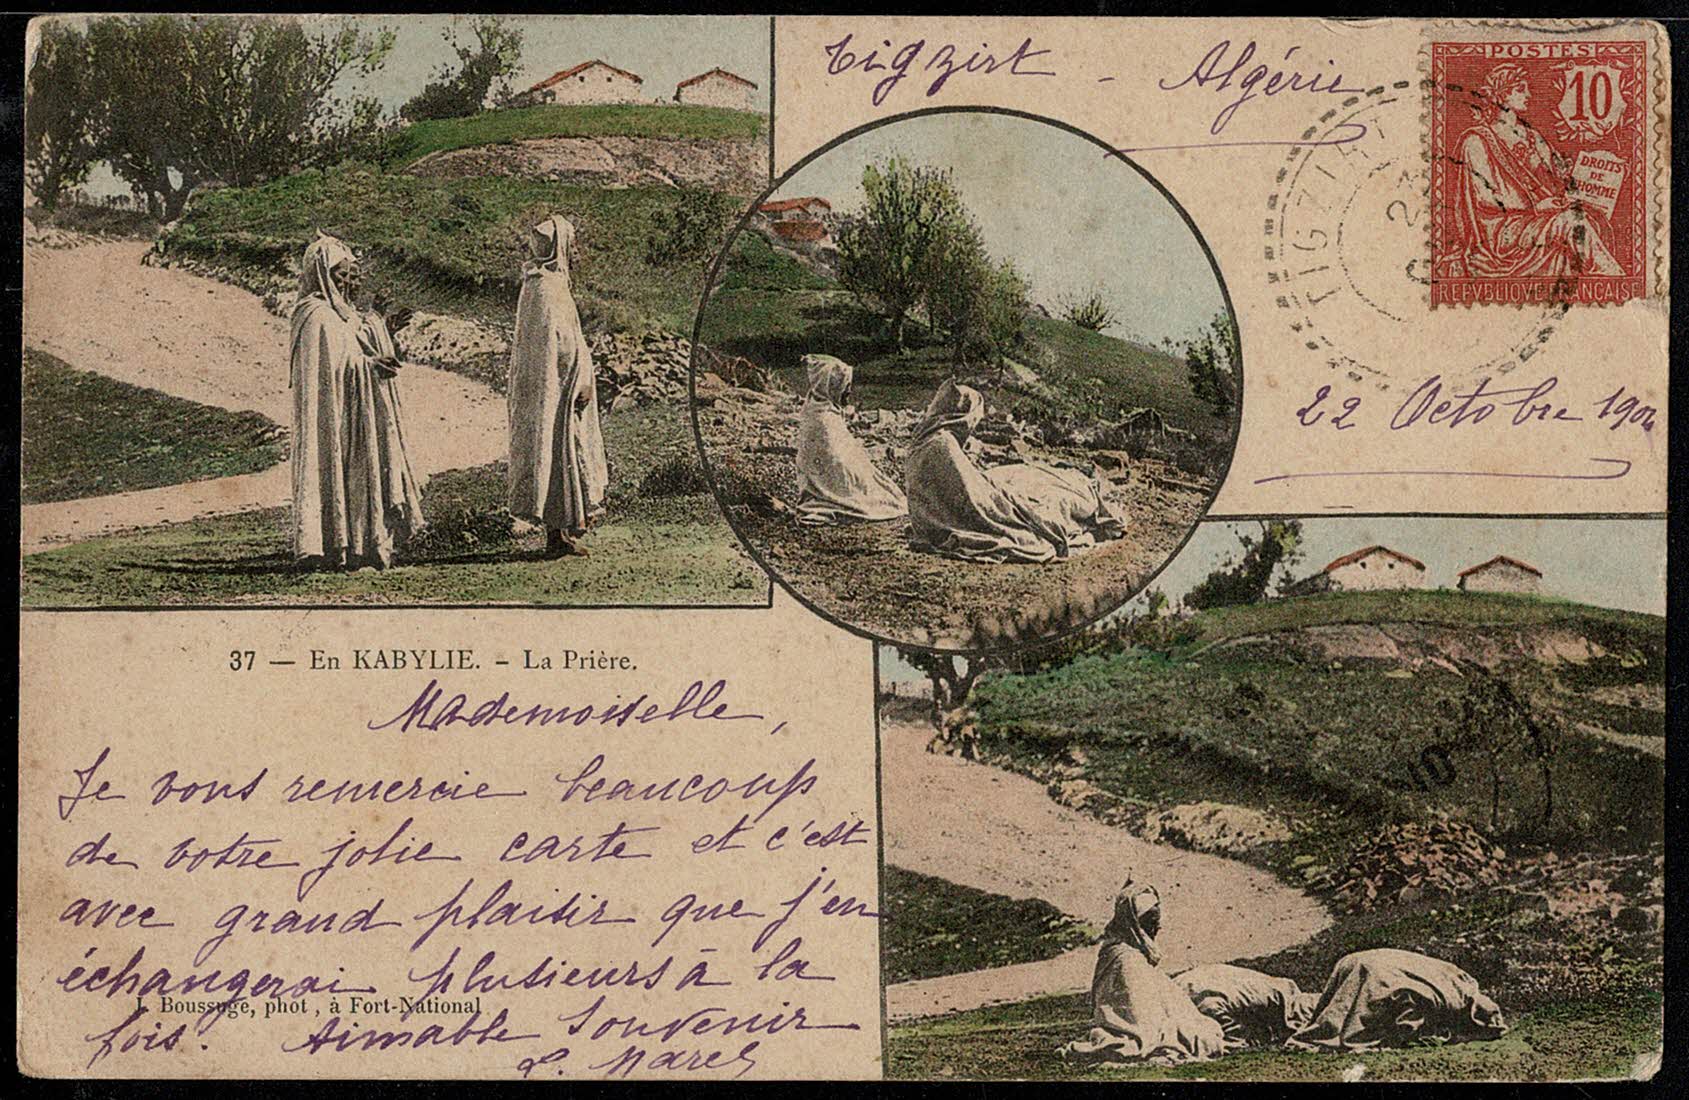 Tigzirt - Algérie
POSTES
10
DROITS
DE
HOMME
REPVBLIQVE FRANÇAISE
TIGZIRT
22 Octobre 1904
37 — En KABYLIE. - La Prière.
Mademoiselle,
Je vous remercie beaucoup
de votre jolie carte et c'est
avec grand plaisir que j'en
échangerai plusieurs à la
J. Boussuge, phot, à Fort-National
fois. Aimable Souvenir